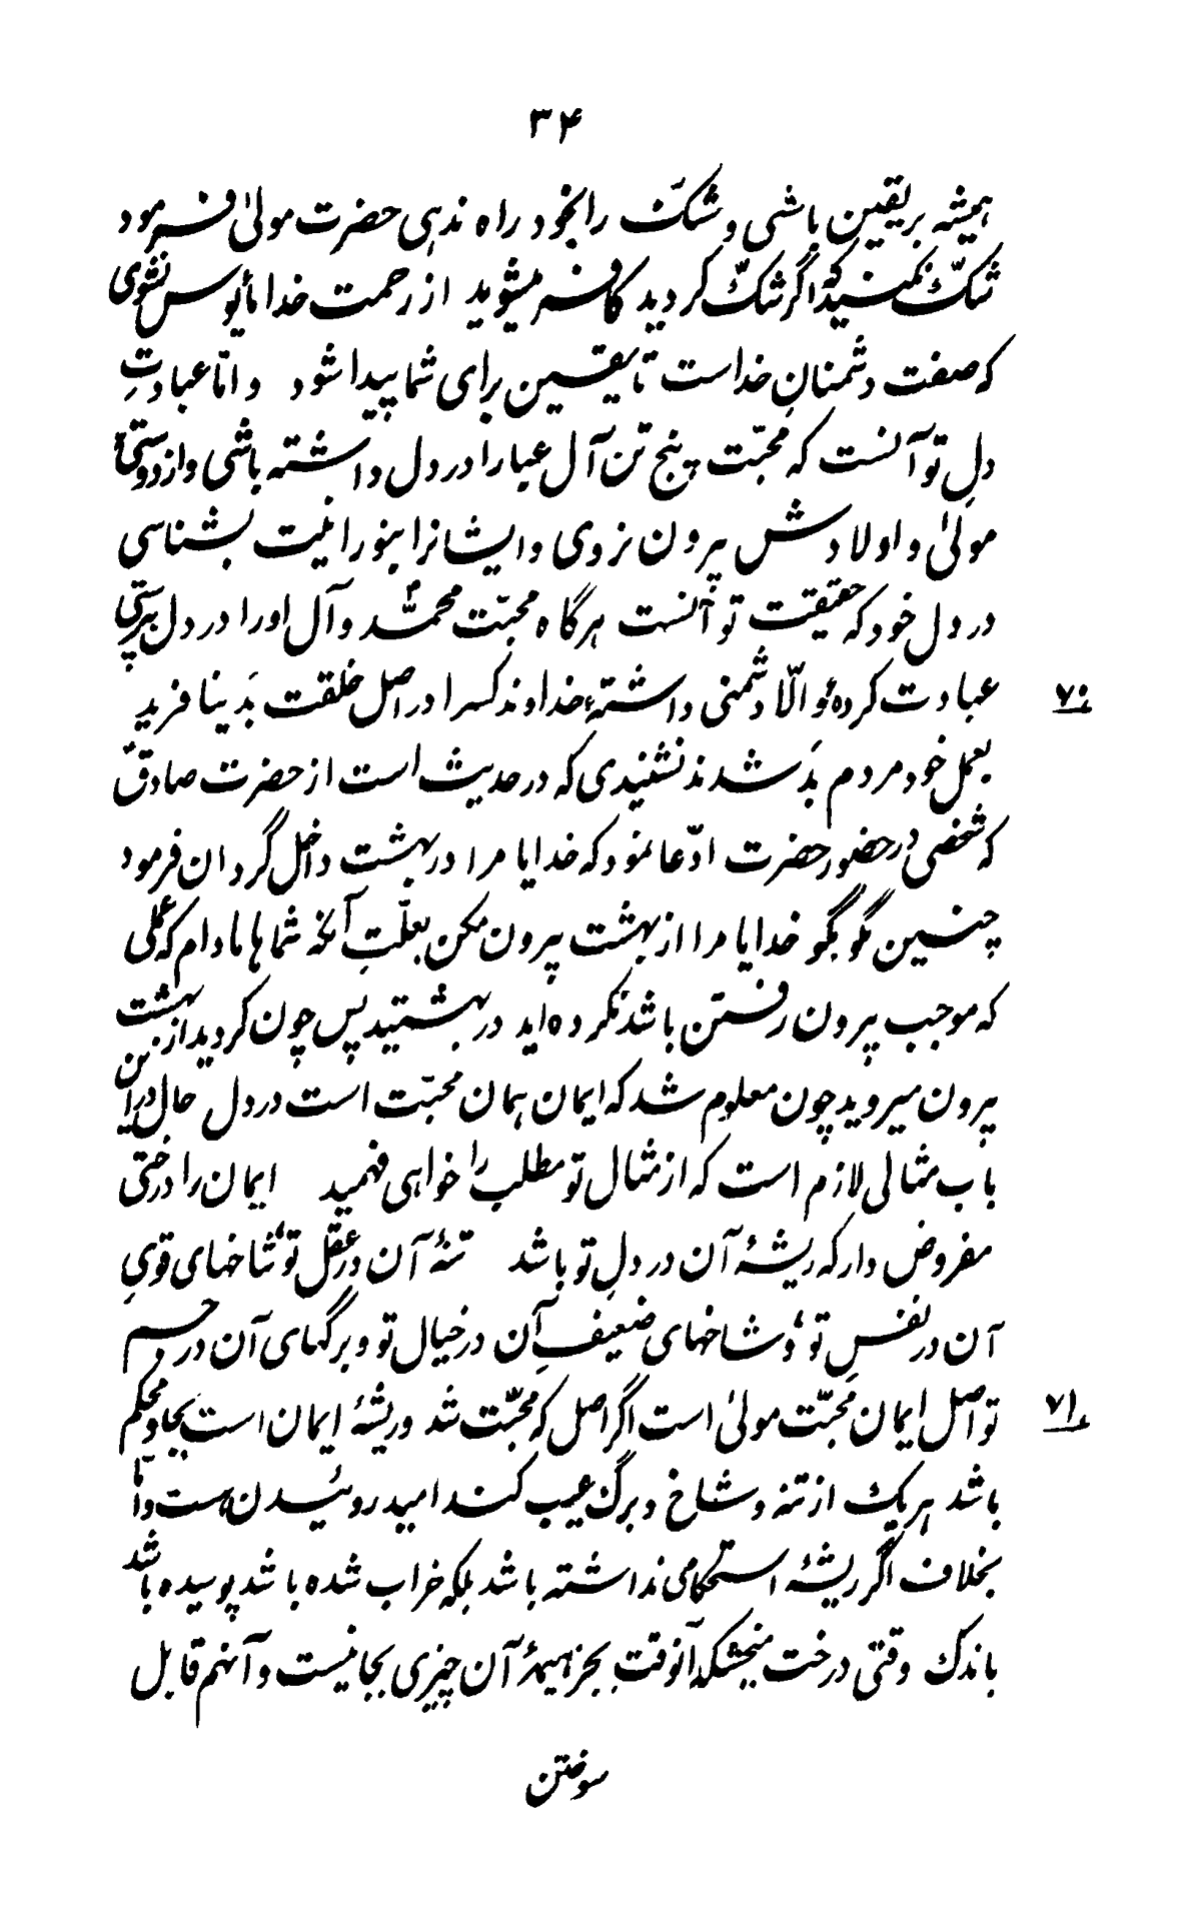 ۳۴
همیشه بر یقین باشی و شکّ را بخود راه ندهی حضرت مولیٰ فرمود
شکّ نکنید که اگر شکّ کردید کافر میشوید از رحمت خدا مأیوس نشوی
که صفت دشمنانِ خداست تا یقین برای شما پیدا شود و امّا عبادتِ
دلِ تو آنست که محبّت پنج تن آل عبا را در دل داشته باشی و از دوستیِ
مولیٰ و اولادش بیرون نروی و ایشانرا بنورانیت بشناسی
در دل خود که حقیقت تو آنست هرگاه محبّت محمّد و آل اورا در دل پرستی
عبادت کردهٔ والّا دشمنی داشتهٔ خداوند کسرا در اصل خلقت بَد نیافرید
۷۰
بعمل خود مردم بَد شدند نشنیدی که در حدیث است از حضرت صادقؑ
که شخصی در حضور حضرت ادّعا نمود که خدایا مرا در بهشت داخل گردان فرمود
چنین مگو بگو خدایا مرا از بهشت بیرون مکن بعلّتِ آنکه شماها مادام که عملی
که موجب بیرون رفتن باشد نکرده‌اید در بهشتید پس چون کردید از بهشت
بیرون میروید چون معلوم شد که ایمان همان محبّت است در دل حال در این
باب مثالی لازم است که از مثال تو مطلب را خواهی فهمید ایمان را درختی
مفروض دار که ریشهٔ آن در دلِ تو باشد تنهٔ آن در عقل تو شاخهای قویِ
آن در نفسِ تو و شاخهای ضعیفِ آن در خیال تو و برگهای آن در جسم
تو اصل ایمان محبّت مولیٰ است اگر اصل که محبّت شد و ریشهٔ ایمان است بجا و محکم
۷۱
باشد هر یک از تنه و شاخ و برگ عیب کند امید روئیدن هست و امّا
بخلاف اگر ریشهٔ استحکامی نداشته باشد بلکه خراب شده باشد پوسیده باشد
باندک وقتی درخت میخشکد آنوقت بجز هیمهٔ آن چیزی بجا نیست و آنهم قابل
سوختن